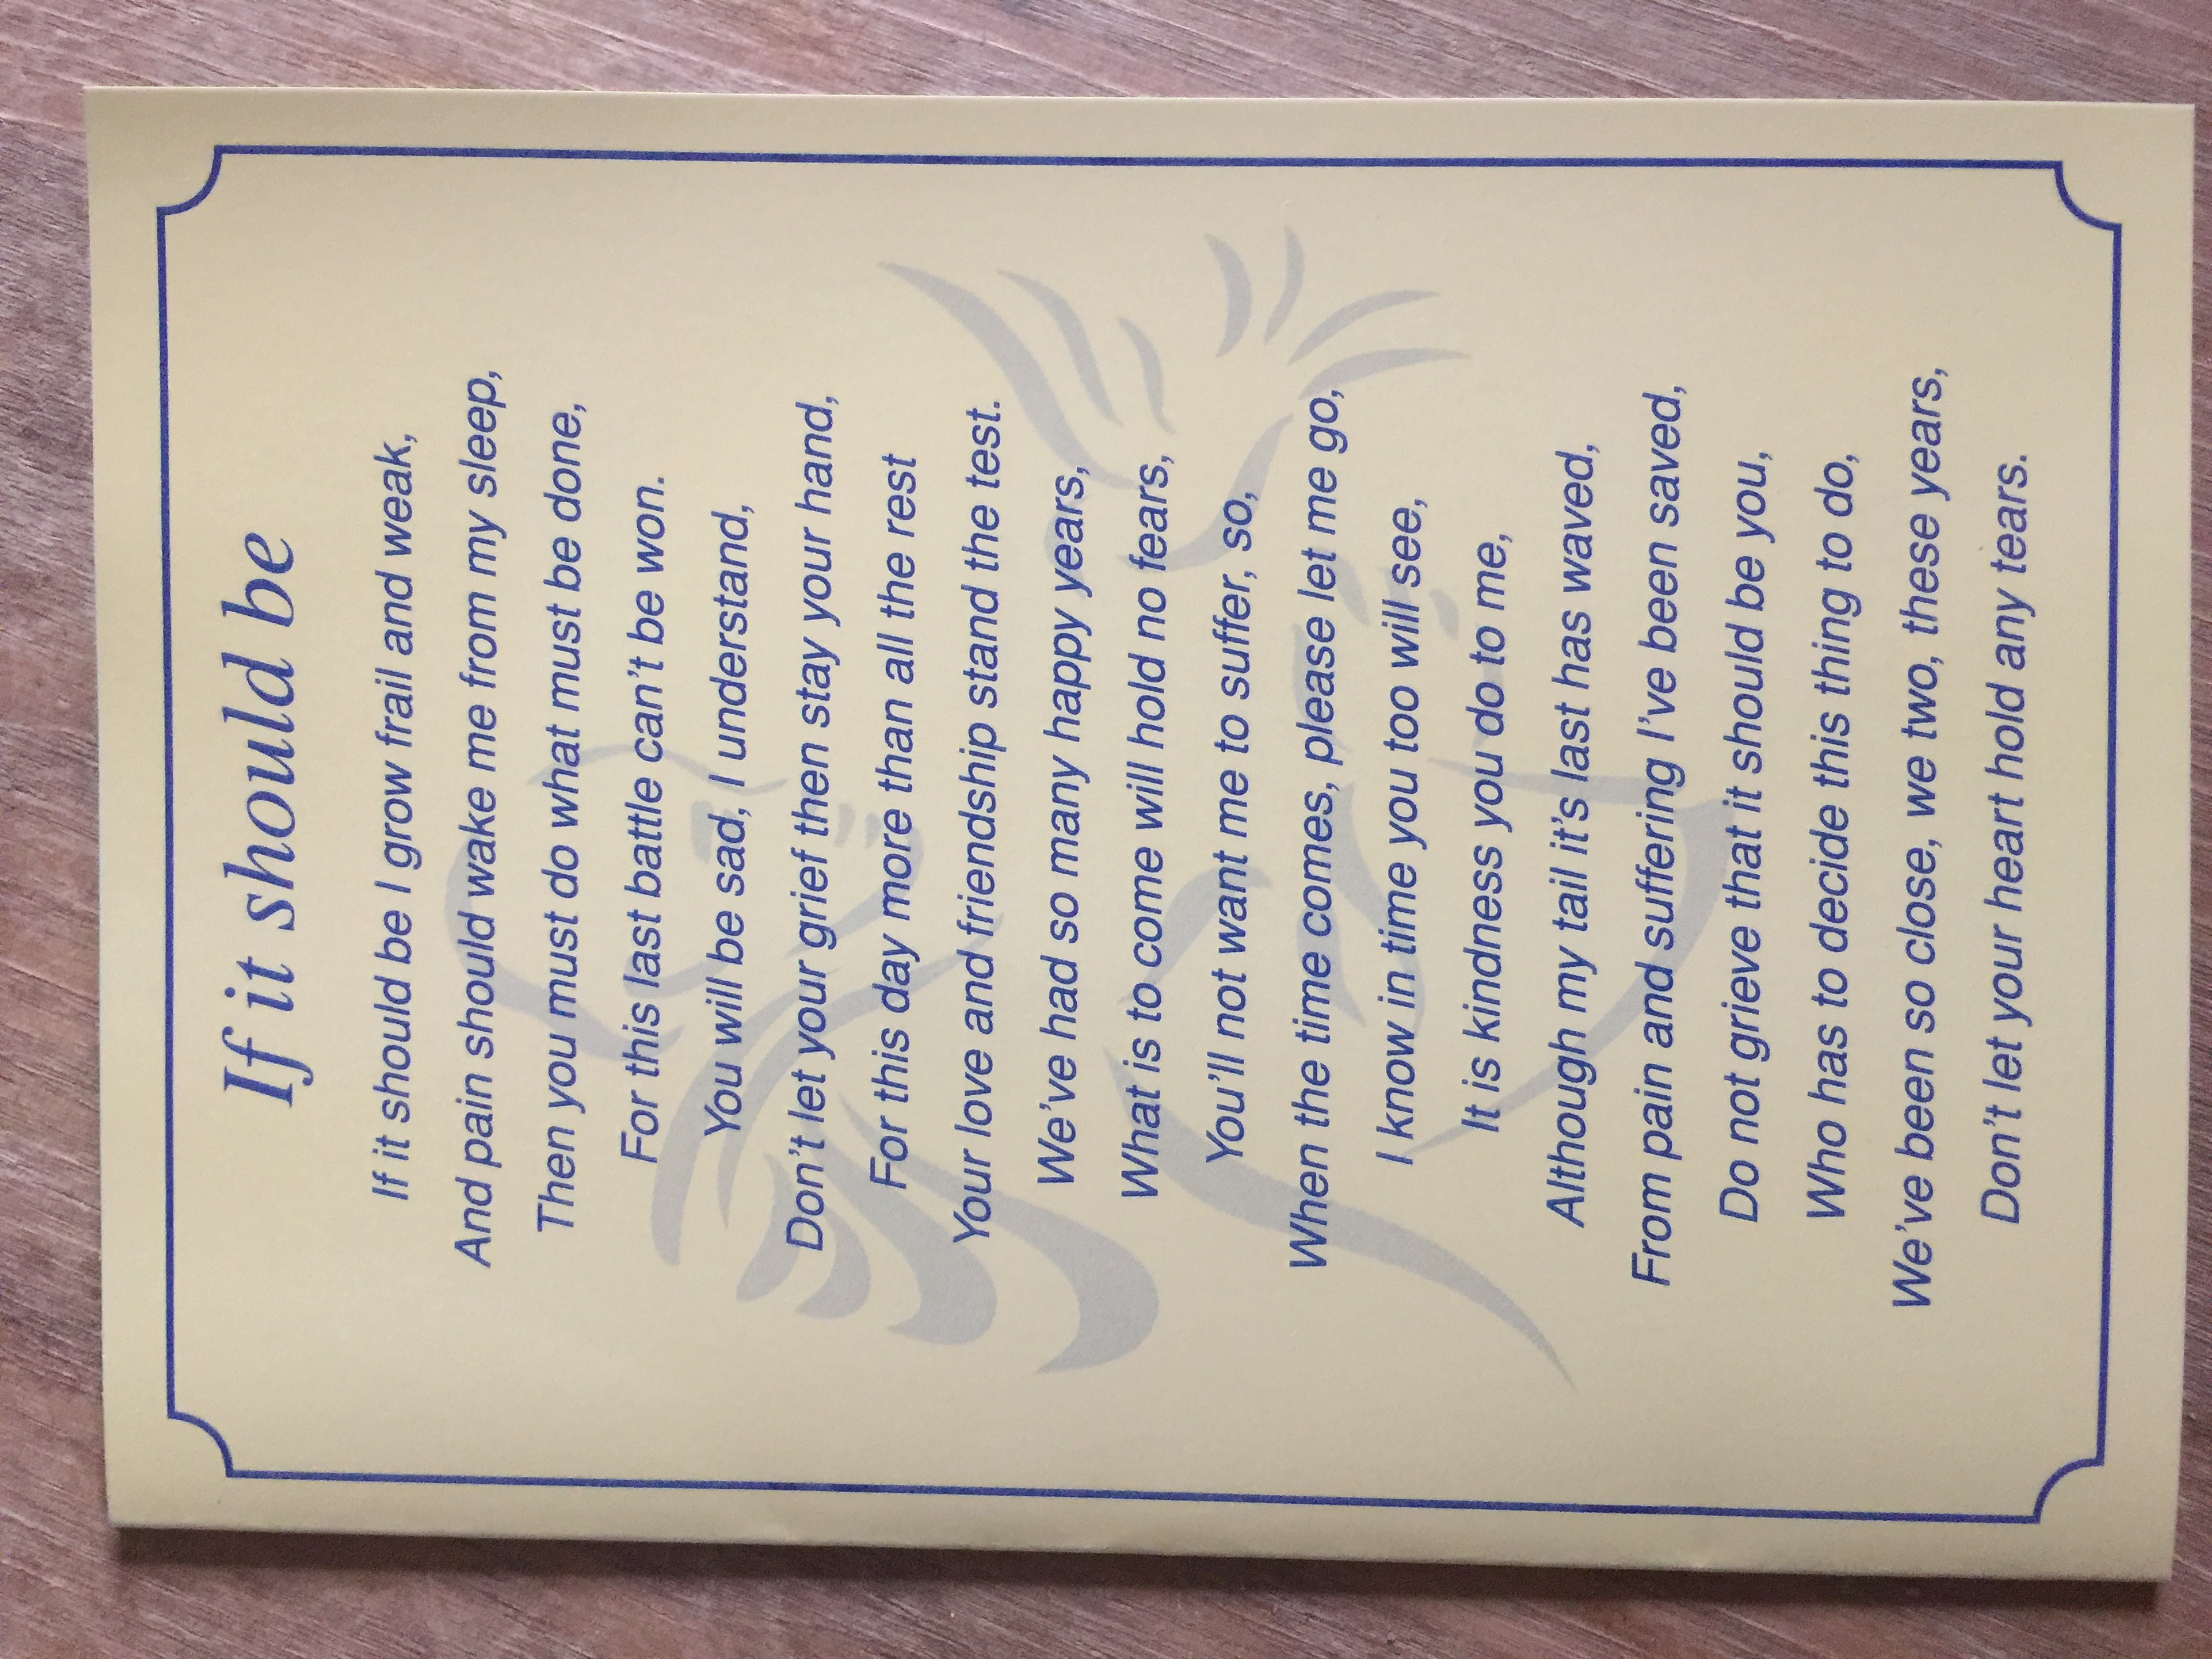 If it should be
If it should be I grow frail and weak,
And pain should wake me from my sleep,
Then you must do what must be done,
For this last battle can't be won.
You will be sad, I understand,
Don't let your grief then stay your hand,
For this day more than all the rest
Your love and friendship stand the test.
We've had so many happy years,
What is to come will hold no fears,
You'll not want me to suffer, so,
When the time comes, please let me go,
I know in time you too will see,
It is kindness you do to me,
Although my tail it's last has waved,
From pain and suffering I've been saved,
Do not grieve that it should be you,
Who has to decide this thing to do,
We've been so close, we two, these years,
Don't let your heart hold any tears.